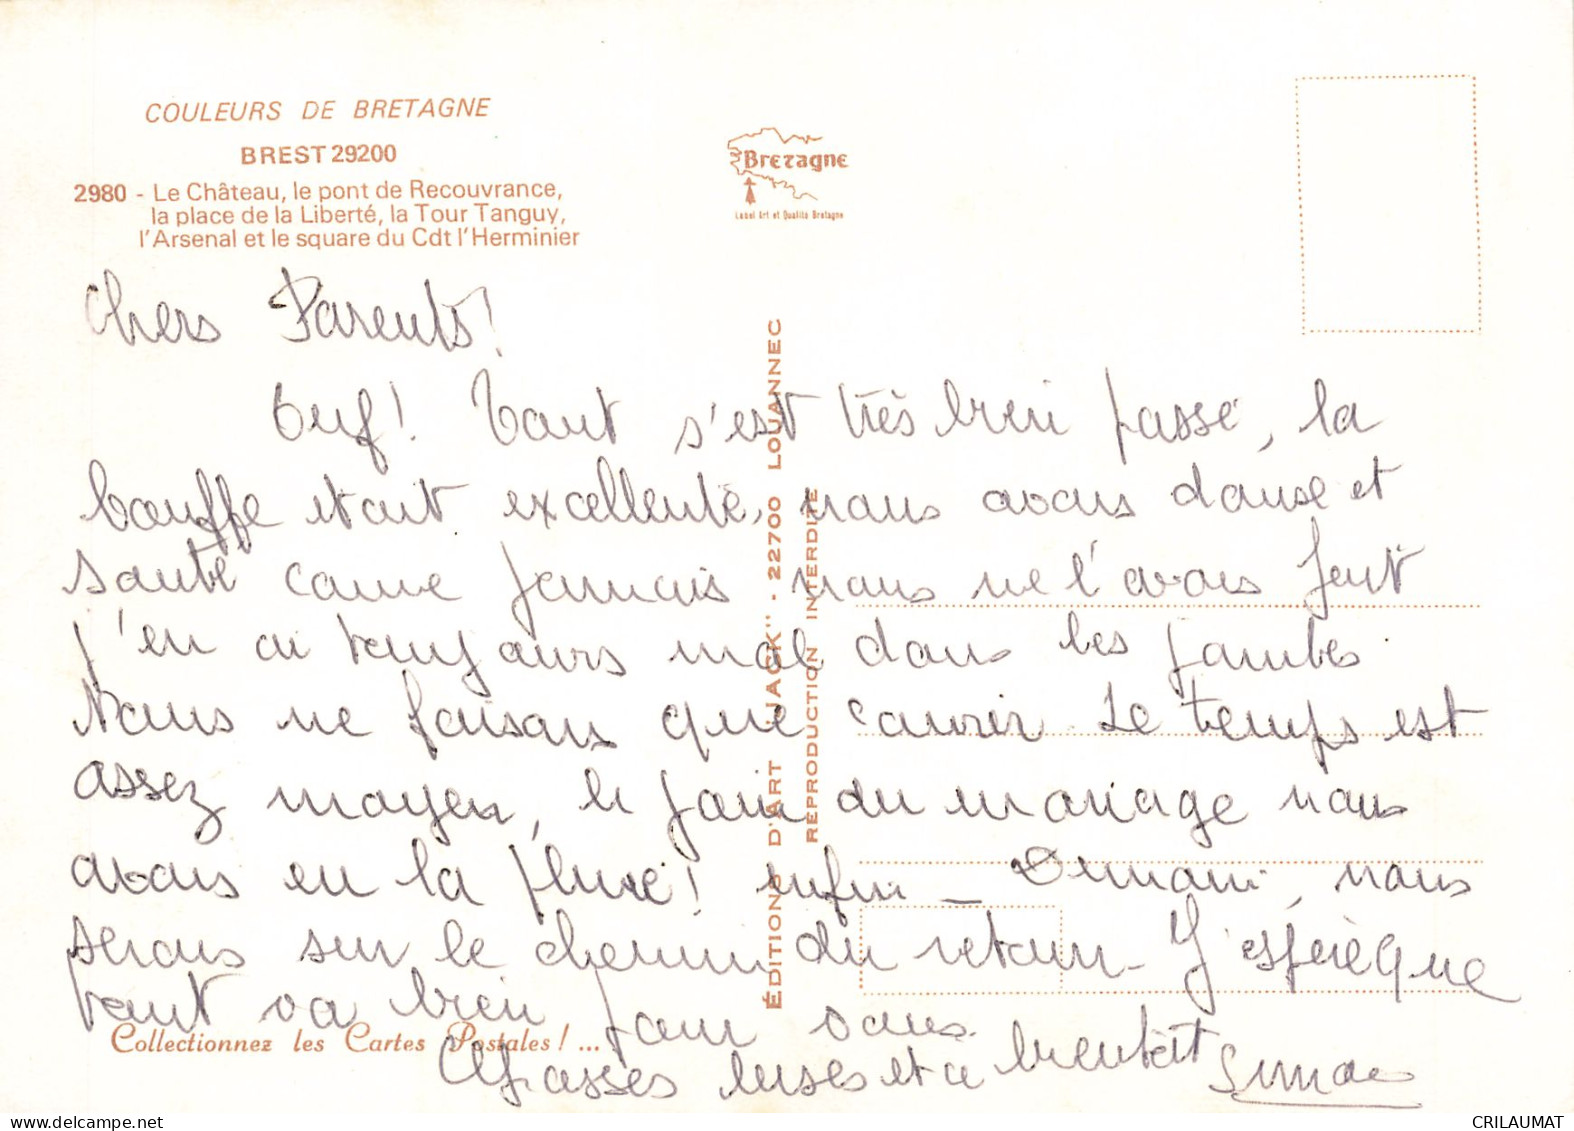 COULEURS DE BRETAGNE
BREST 29200
2980 - Le Château, le pont de Recouvrance,
la place de la Liberté, la Tour Tanguy,
l'Arsenal et le square du Cdt l'Herminier
Bretagne
Label Art et Qualité Bretagne
ÉDITIONS D'ART "JACK" - 22700 LOUANNEC
REPRODUCTION INTERDITE
Chers Parents!
Ouf! Tout s'est très bien passé, la
bouffe était excellente, nous avons dansé et
sauté comme jamais nous ne l'avons fait
j'en ai toujours mal dans les jambes
Nous ne faisons que courir. Le temps est
assez moyen, le jour du mariage nous
avons eu la pluie! enfin - Demain, nous
serons sur le chemin du retour - J'espère que
tout va bien pour vous.
Grosses bises et à bientôt
Collectionnez les Cartes Postales! ...
CRILAUMAT